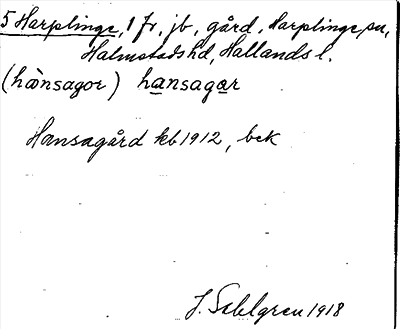 5 Harplinge, 1 fr, jb, gård, Harplinge sn,
Halmstads hd, Hallands l.
(hànsagor) hansagar
Hansagård kb 1912, bek
J. Sahlgren 1918